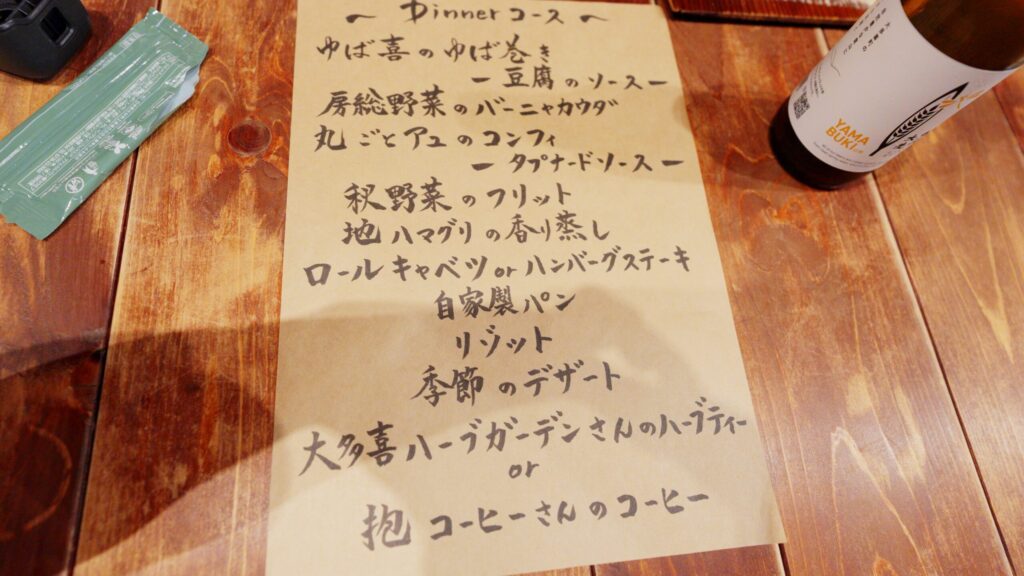 ～ Dinner コース ～
ゆば喜のゆば巻き
ー豆腐のソースー
房総野菜のバーニャカウダ
丸ごとアユのコンフィ
ータプナードソースー
秋野菜のフリット
地ハマグリの香り蒸し
ロールキャベツorハンバーグステーキ
自家製パン
リゾット
季節のデザート
大多喜ハーブガーデンさんのハーブティー
or
抱コーヒーさんのコーヒー
YAMA
BUKI